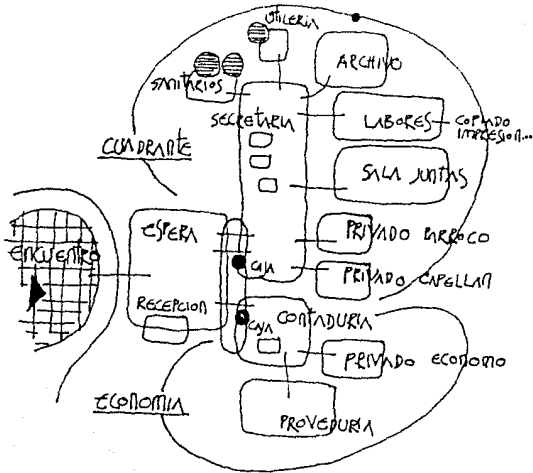 UTILERIA
ARCHIVO
SANITARIOS
SECRETARIA
LABORES
COPIADO
IMPRESION...
CUADRANTE
SALA JUNTAS
ESPERA
PRIVADO PARROCO
ENCUENTRO
CAJA
PRIVADO CAPELLAN
RECEPCION
CONTADURIA
CAJA
PRIVADO ECONOMO
ECONOMIA
PROVEDURIA